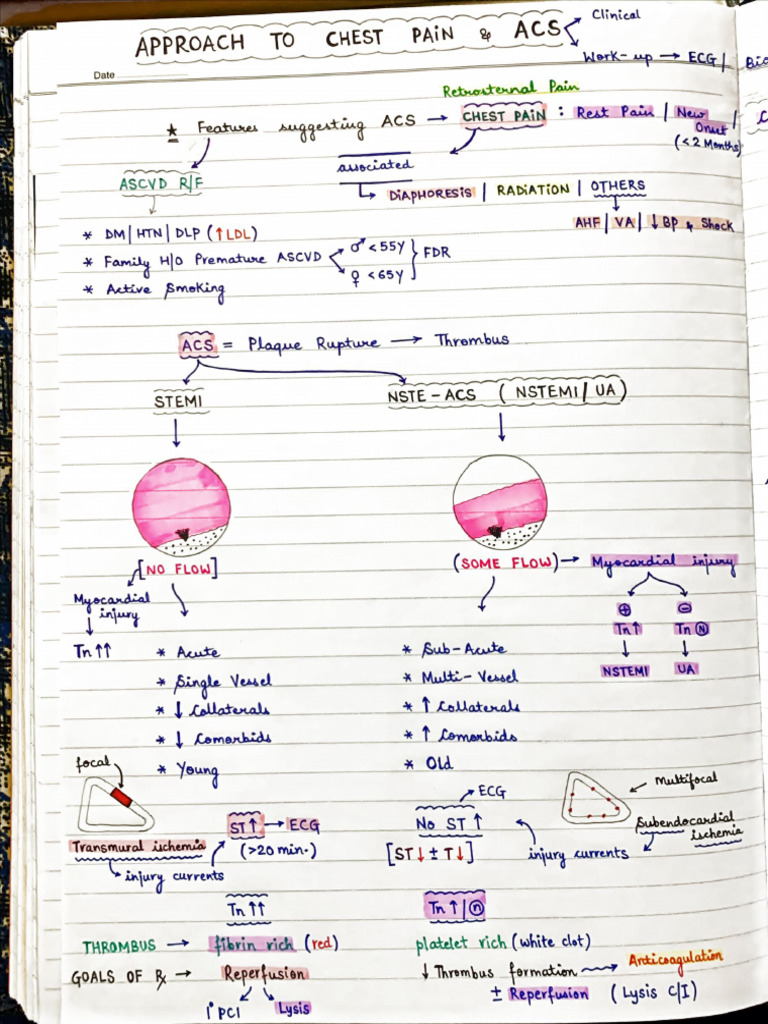 APPROACH TO CHEST PAiN & ACS
Clinical
Work-up → ECG |
Date
Retrosternal Pain
★ Features suggesting ACS → CHEST PAiN : Rest Pain | New Onset |
(<2 Months)
ASCVD R/F
associated
DiAPHORESIS | RADIATION | OTHERS
AHF | VA | ↓BP & Shock
* DM | HTN | DLP (↑LDL)
* Family H/O Premature ASCVD
♂ <55y
♀ <65y
} FDR
* Active Smoking
ACS = Plaque Rupture → Thrombus
STEMI
NSTE-ACS ( NSTEMI / UA )
[NO FLOW]
(SOME FLOW) → Myocardial injury
Myocardial injury
Tn↑↑
⊕
⊖
Tn↑
Tn Ⓝ
NSTEMI
UA
* Acute
* Single Vessel
* ↓ Collaterals
* ↓ Comorbids
* Young
* Sub-Acute
* Multi-Vessel
* ↑ Collaterals
* ↑ Comorbids
* Old
focal
Transmural ischemia
injury currents
ST↑ → ECG
(>20 min.)
ECG
No ST ↑
[ST↓ ± T↓]
Multifocal
Subendocardial ischemia
injury currents
Tn↑↑
Tn↑/ⓝ
THROMBUS → fibrin rich (red)
platelet rich (white clot)
GOALS OF Rx → Reperfusion
1° PCI
Lysis
↓ Thrombus formation → Anticoagulation
± Reperfusion ( Lysis C/I )